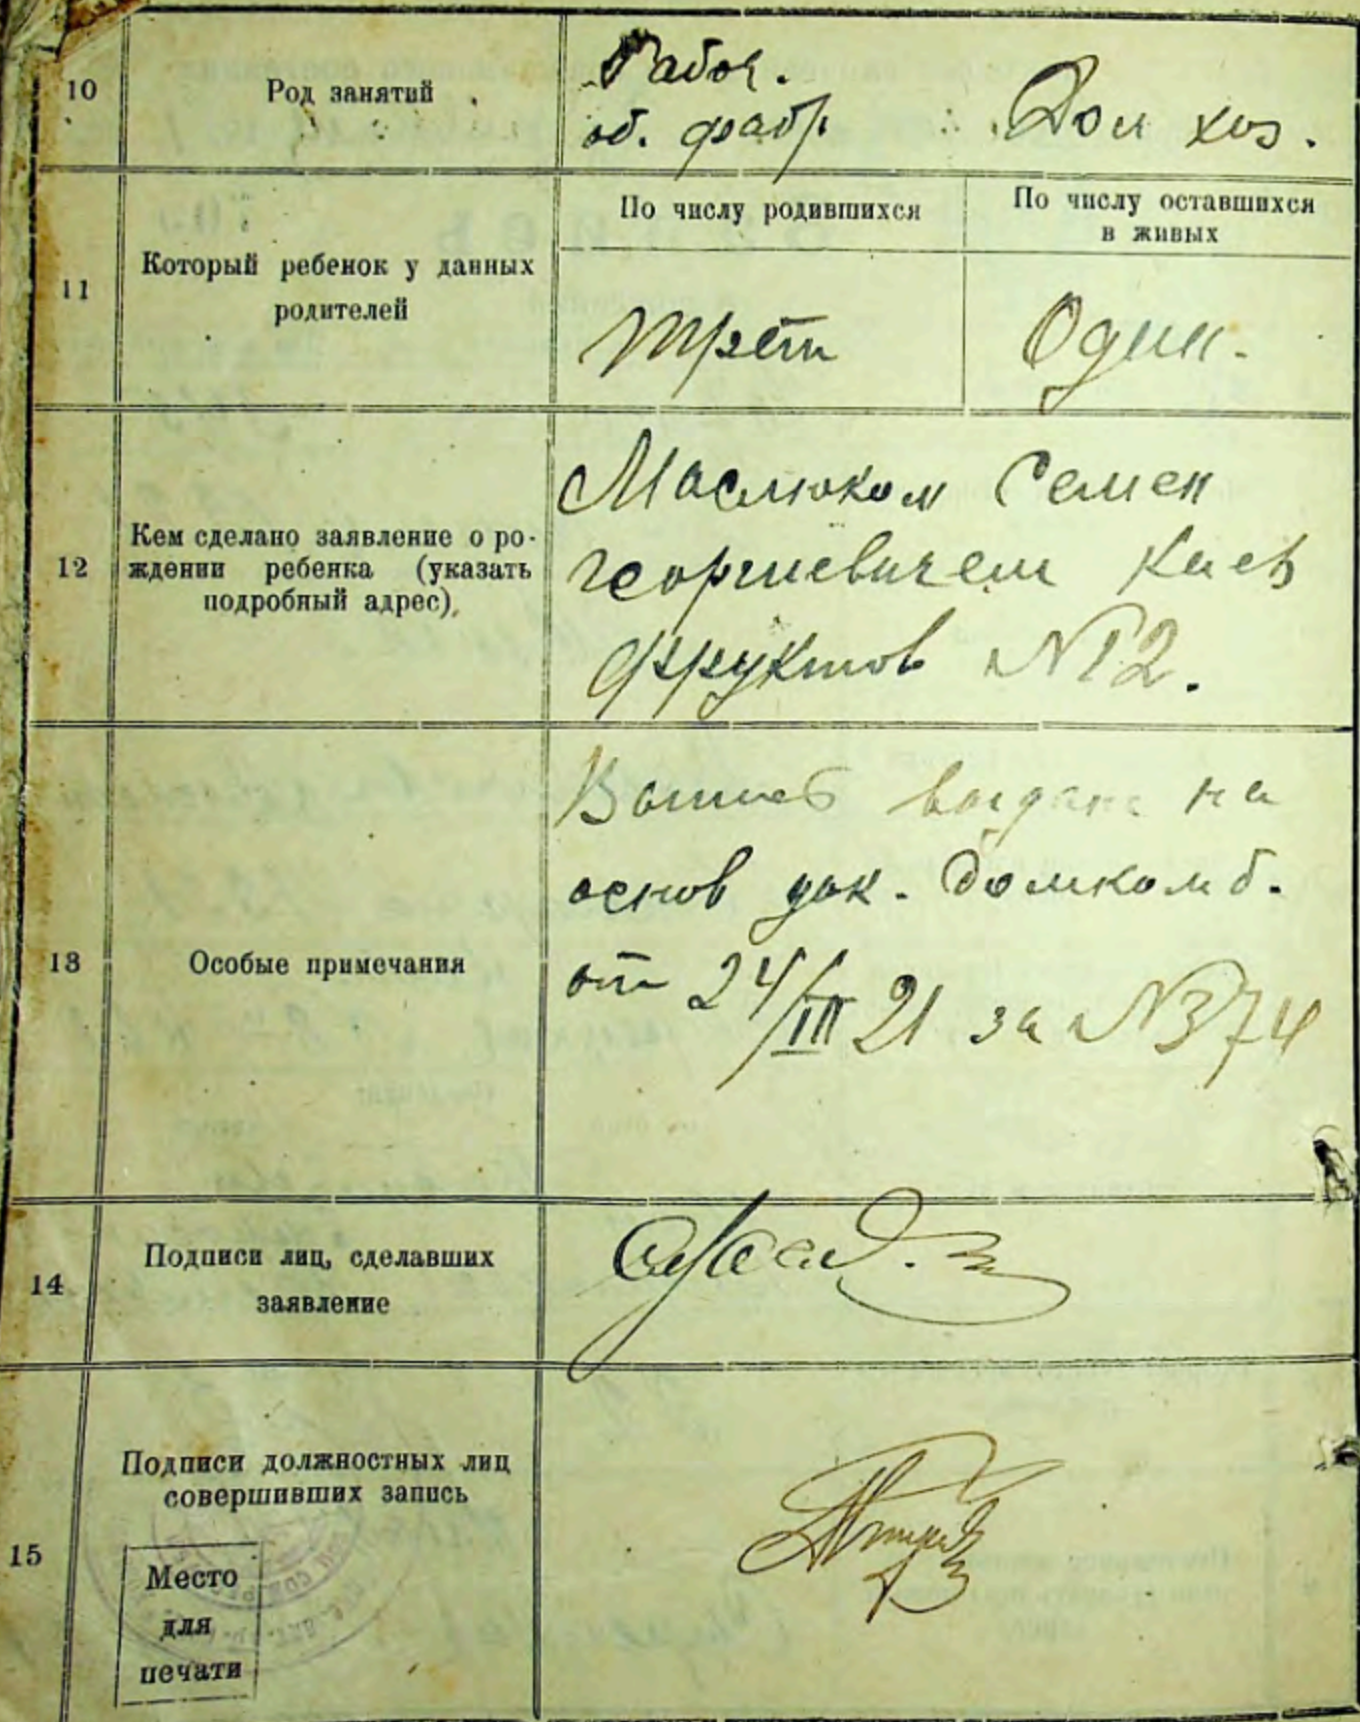 10
Род занятий
Рабоч.
об. фабр
Дом хоз.
11
Который ребенок у данных
родителей
По числу родившихся
По числу оставшихся
в живых
трет
Один.
12
Кем сделано заявление о ро-
ждении ребенка (указать
подробный адрес)
Маслюком Семен
Георгиевичем Киев
Фруктов №12.
13
Особые примечания
выдана на
основ док. домкомб.
от 24/III 21 за №374
14
Подписи лиц, сделавших
заявление
15
Подписи должностных лиц
совершивших запись
Место
для
печати